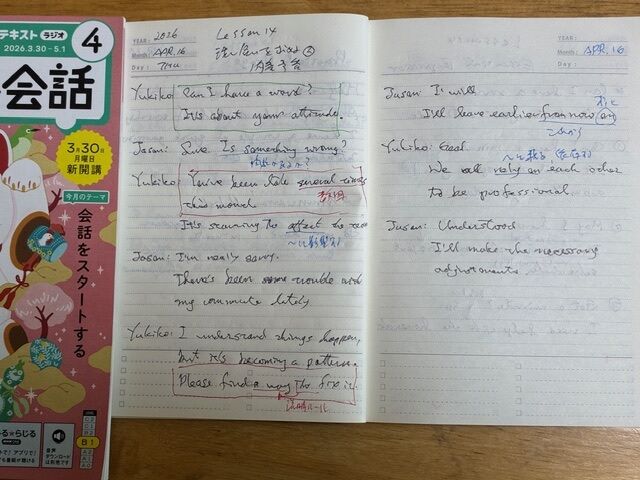 テキスト ラジオ
2026.3.30-5.1
4
会話
3月30日
月曜日
新開講
今月のテーマ
会話をスタートする
る★らじる
音声
ダウンロード
は別売です
C2
C1
B2
B1
A2
A1
A0
YEAR: 2026 Lesson 14
Month: APR. 16
Day: THU
Yukiko: Can I have a word?
It's about your attitude.
Jason: Sure. Is something wrong?
Yukiko: You've been late several times
this month.
It's starting to affect the team
〜に影響する
Jason: I'm really sorry.
There's been some trouble with
my commute lately
Yukiko: I understand things happen,
but it's becoming a pattern.
Please find a way to fix it.
YEAR:
Month: APR. 16
Day:
Jason: I will
I'll leave earlier from now on
Yukiko: Good.
We all rely on each other
to be professional.
Jason: Understood
I'll make the necessary
adjustments